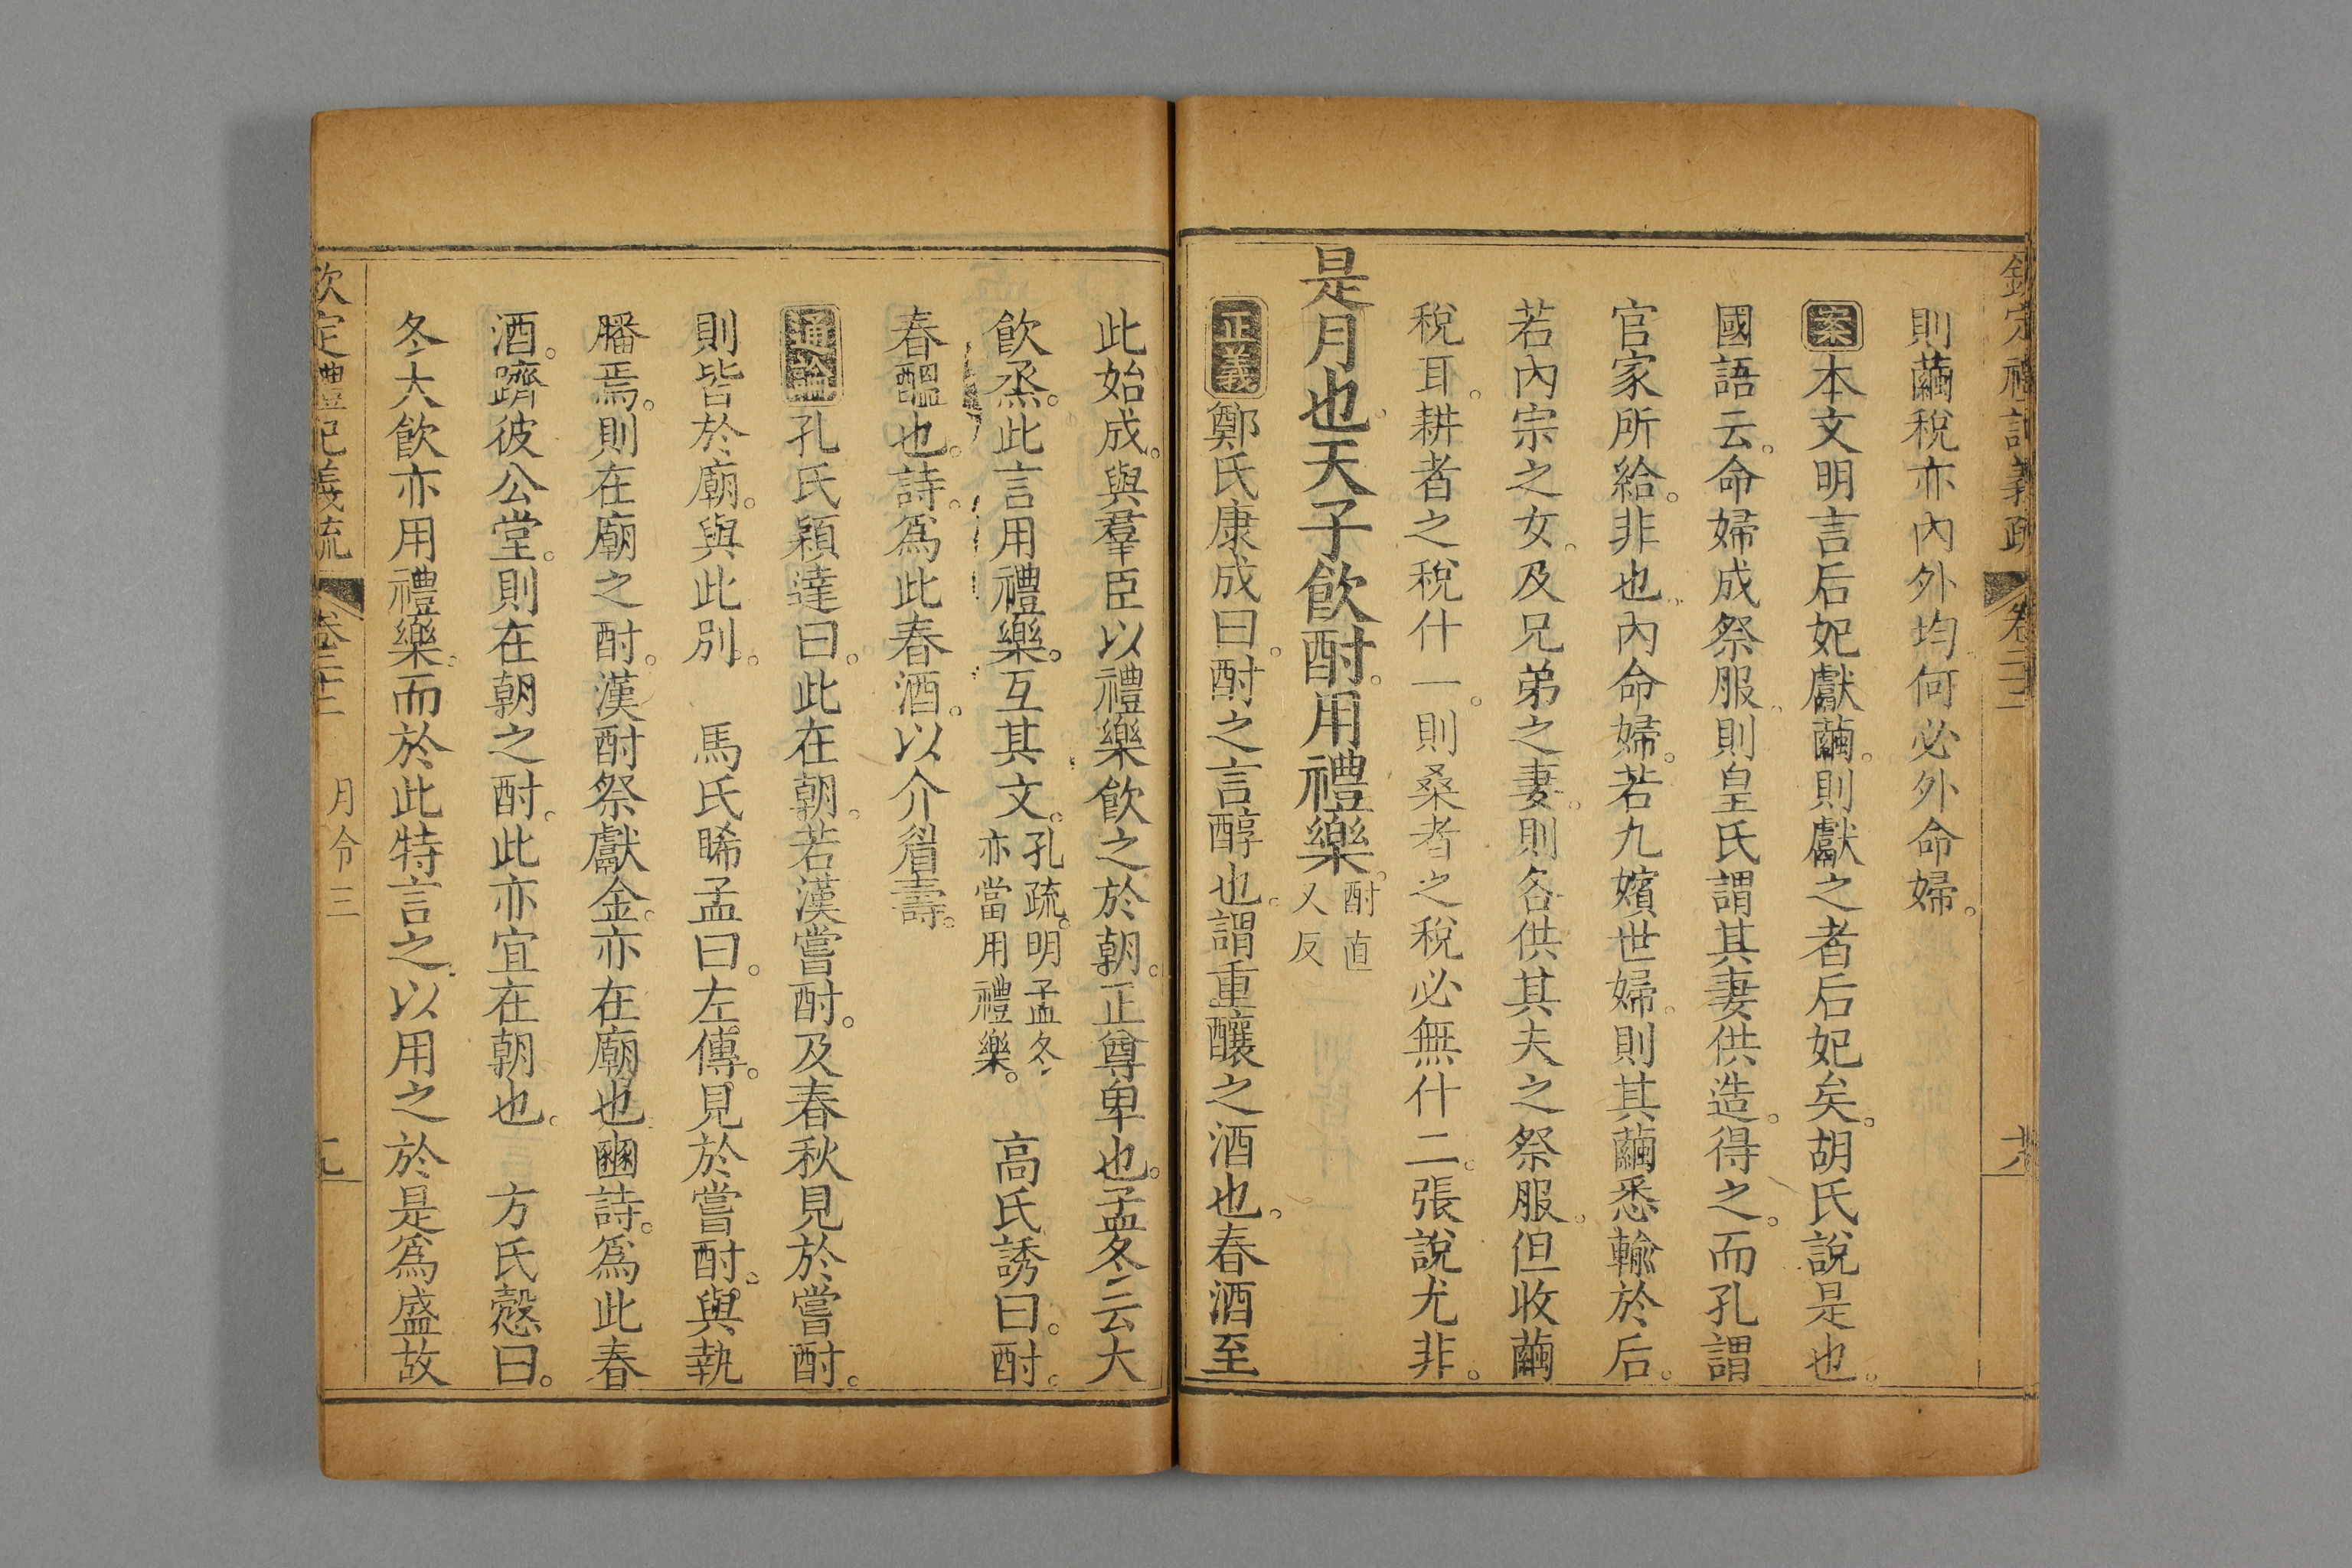 則繭稅亦內外均何必外命婦。
案本文明言后妃獻繭。則獻之者后妃矣。胡氏說是也。
國語云。命婦成祭服。則皇氏謂其妻供造。得之。而孔謂
官家所給。非也。內命婦。若九嬪世婦。則其繭悉輸於后。
若內宗之女。及兄弟之妻。則各供其夫之祭服。但收繭
稅耳。耕者之稅什一。則桑者之稅必無什二。張說尤非。
是月也。天子飲酎。用禮樂。酎直
又反
正義鄭氏康成曰。酎之言醇也。謂重釀之酒也。春酒至
此始成。與羣臣以禮樂飲之於朝。正尊卑也。孟冬云大
飲烝。此言用禮樂。互其文。孔疏。明孟冬
亦當用禮樂。 高氏誘曰。酎。
春醞也。詩。爲此春酒。以介眉壽。
通論孔氏穎達曰。此在朝。若漢嘗酎。及春秋見於嘗酎。
則皆於廟。與此別。 馬氏晞孟曰。左傳。見於嘗酎。與執
膰焉。則在廟之酎。漢酎祭獻金。亦在廟也。豳詩。爲此春
酒。躋彼公堂。則在朝之酎。此亦宜在朝也。 方氏慤曰。
冬大飲亦用禮樂。而於此特言之。以用之於是爲盛故
欽定禮記義疏 卷二十二 月令三